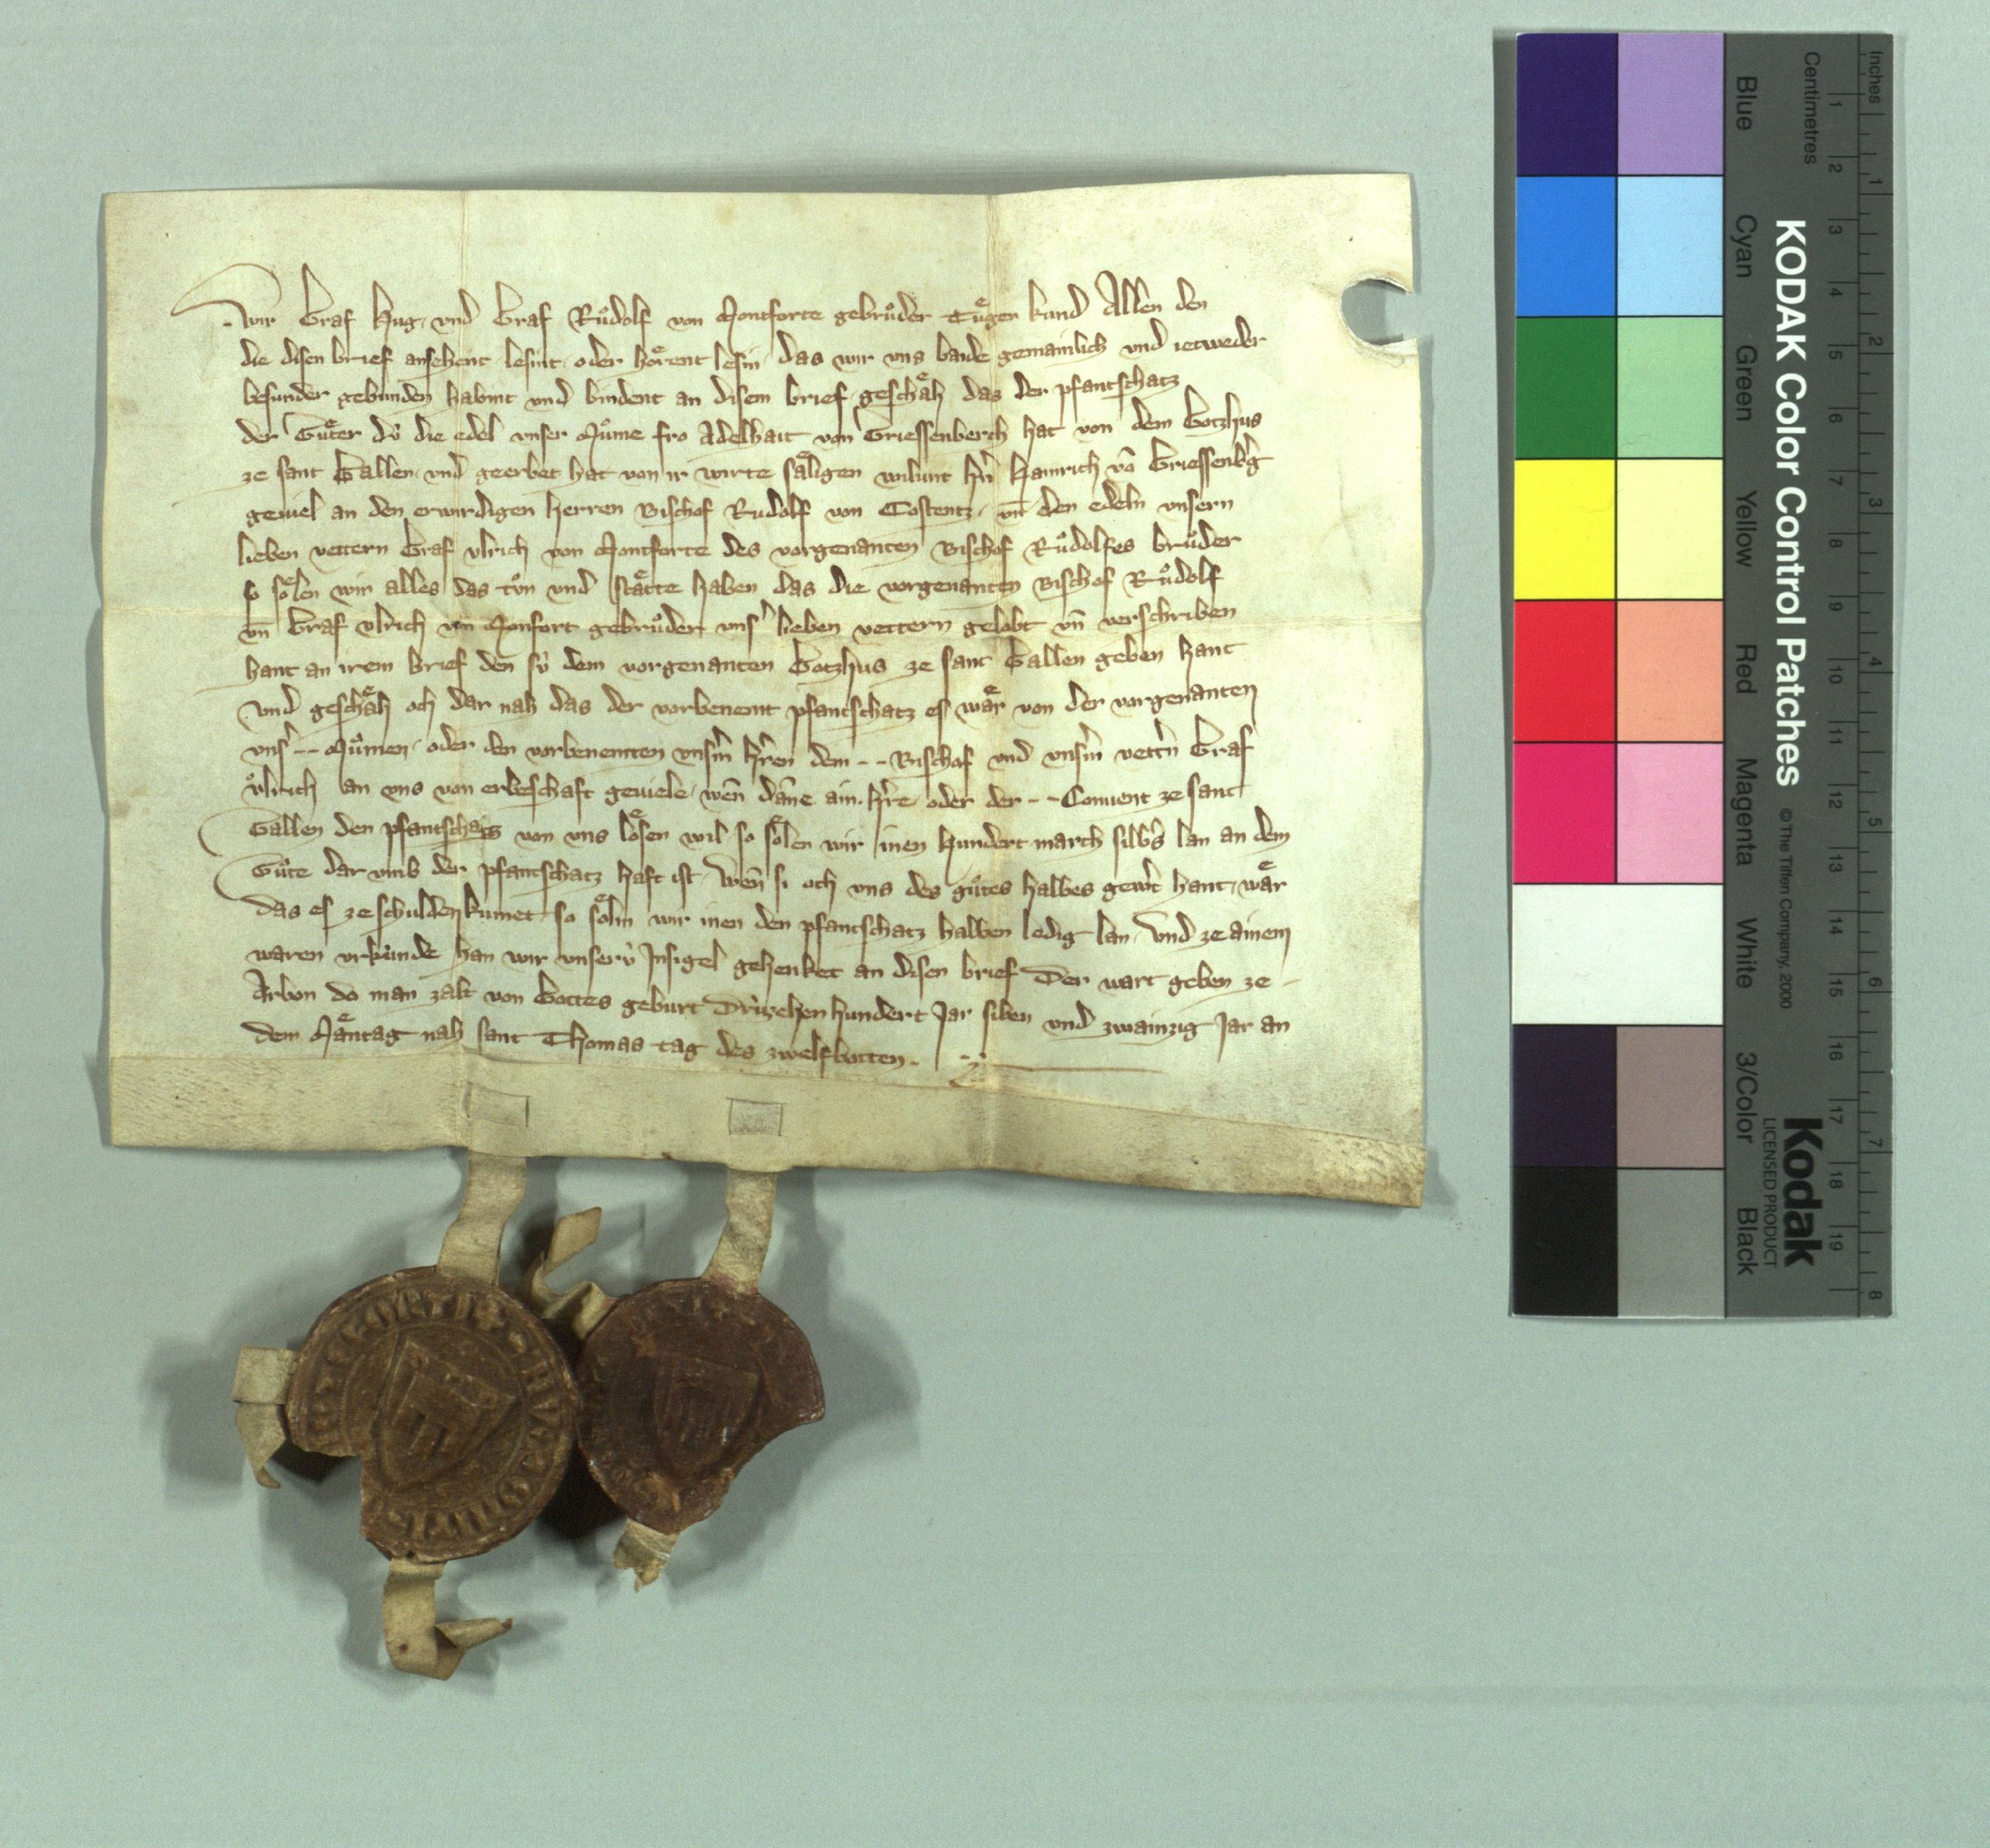 Wir Graf Hug. vnd Graf Ruͦdolf von Montforte gebruͤder Tuͤgen kund Allen den
die disen brief ansehent lesint. oder hoͤrent lesin. das wir vns baide gemainlich vnd ietweder
besunder gebunden habint vnd bindent an disem brief. geschaͤh das der pfantschatz
der Guͤter dv̍ die edel vnser Muͦme fro Adelhait von Griessenberch hat von dem Gotzhus
ze sant Gallen. vnd geerbet hat von ir wirte saͤligen wilunt h̍n Hainrich vō Griessenb̍g
geuiel an den erwirdigen herren Bischof Rudolf von Costentz. vn̄ den edeln vnsern
lieben vettern Graf vlrich von Montforte des vorgenanten Bischof Ruͦdolfes bruͦder
so soͤlen wir alles das tuͦn vnd staͤtte haben das die vorgenanten Bischof Ruͦdolf
vn̄ Graf vlrich von Monfort gebruͦder vns̍ lieben vettern gelobt vn̄ verschriben
hant an irem brief den sv̍ dem vorgenanten Gotzhus ze sant Gallen geben hant
vnd geschaͤh och dar nah das der vorbenemt pfantschatz es waͤr von der vorgenanten
vns̍ -- Muͦmen. oder den vorbenemten vns̍m h̍ren dem -- Bischof vnd vns̍m vett̍n Graf
vͦlrich an vns von erbeschaft geuiele. wen̄ dāne ain. h̍re oder der -- Conuent ze sant
Gallen den pfantschatz von vns loͤsen wil so soͤlen wir inen hundert march silb̍s lan an dem
Guͦte dar vmb der pfantschatz haft ist. wen̄ si och vns des guͦtes halbes gew̍t hant. waͤr
das es ze schulden kumet so soͤlin wir inen den pfantschatz halben ledig lan. Vnd ze ainem
waren vrkv̍nde han wir vnserv̍ Insigel gehenket an disen brief Der wart geben ze -
Arbon do man zalt von Gottes geburt Drv̍zehen hundert Jar siben vnd zwainzig Jar an
dem Maͤntag nah sant Thomas tag des zwelfbotten.
Inches
Centimetres
1 2 3 4 5 6 7 8
1 2 3 4 5 6 7 8 9 10 11 12 13 14 15 16 17 18 19
KODAK Color Control Patches
© The Tiffen Company, 2000
Kodak
LICENSED PRODUCT
Blue Cyan Green Yellow Red Magenta White 3/Color Black